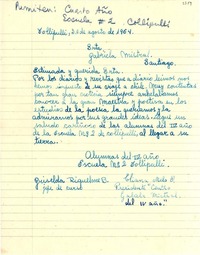 Remiten: Cuarto Año
Escuela # 2 Collipulli
Collipulli, 20 de agosto de 1954.
Srta.
Gabriela Mistral.
Santiago.
Estimada y querida Srta.
Por los diarios y revistas que a diario leemos nos
hemos impuesto de su viaje a Chile. Muy contentas
por tan grata noticia, siempre anhelábamos
conocer a la gran Maestra y poetisa en los
estudios de la poesía la queremos y la
admiramos por sus grandes ideas, llegue un
saludo cariñoso de las alumnas del IV año
de la Escuela Nº 2 de Collipulli al llegar a su
tierra.
Alumnas del IV año
Escuela Nº 2 Collipulli.
Griselda Riquelme B.
jefe de curso
Presidenta "Centro
Gabriela Mistral"
del IV año"